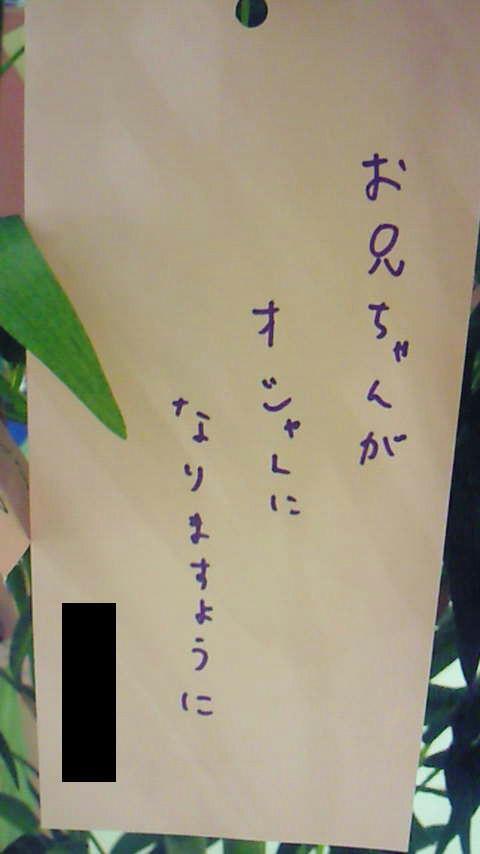 お兄ちゃんが
オシャレに
なりますように